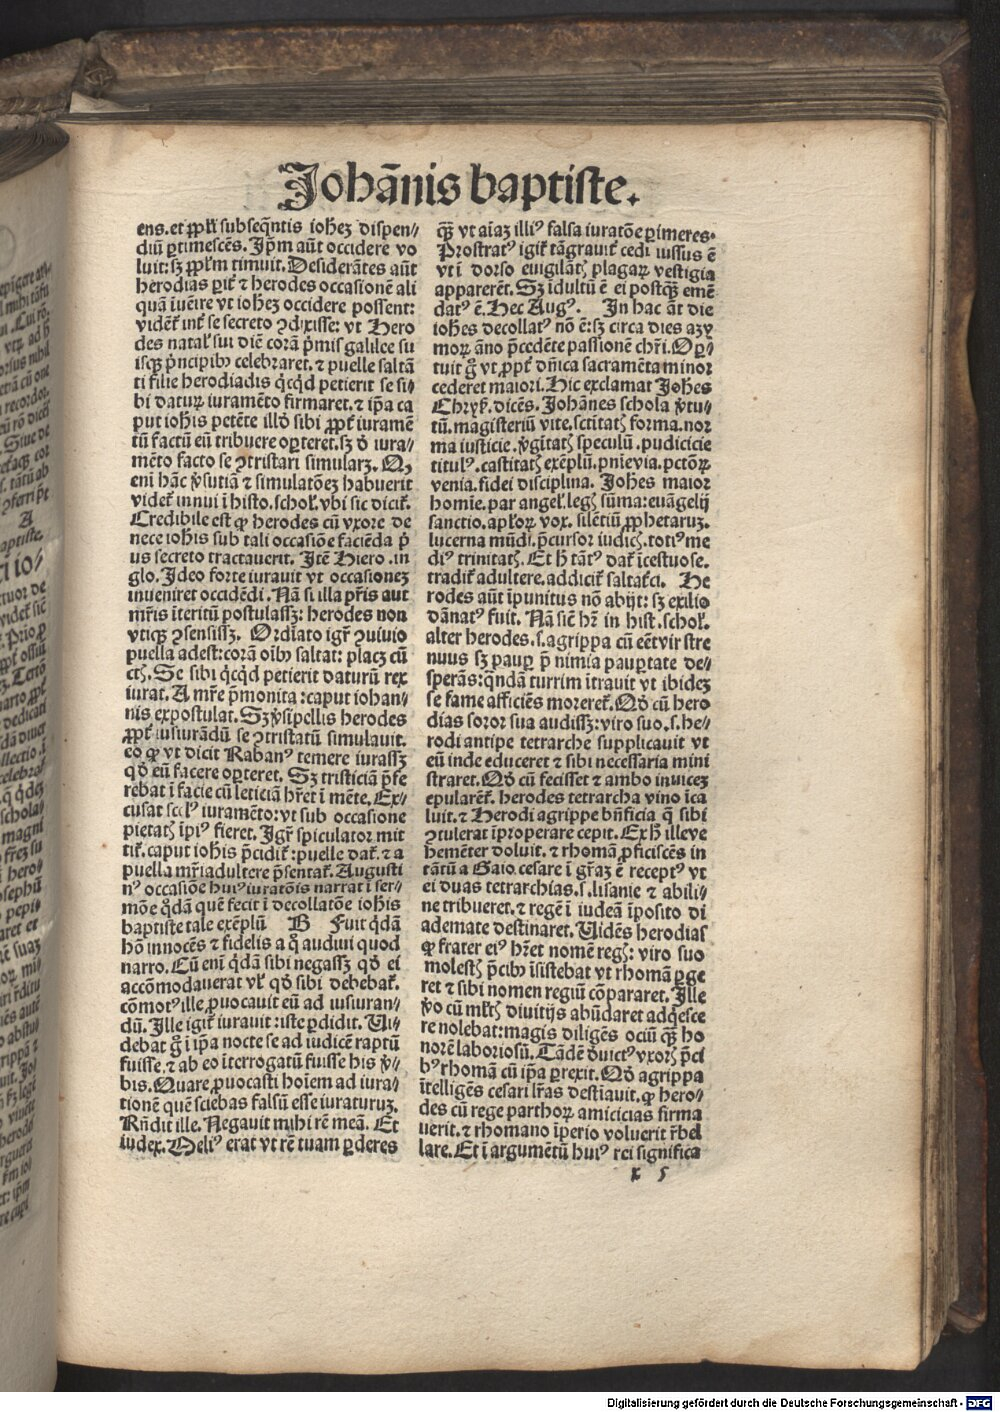 Johānis baptiste.
ens. et ꝓpť subseq̄ntis iohez dispen⸗
diū ꝑtimescēs. Ip̄m aūt occidere vo
luit: sꝫ ꝓpľm timuit. Desiderātes aūt
herodias ꝑiť ⁊ herodes occasionē ali
quā īuēire vt iohez occidere possent:
videř inť se secreto ꝯdixisse: vt Hero
des natať sui diē corā p̄mis galilee su
isqꝫ p̄ncipibꝰ celebraret. ⁊ puelle saltā
ti filie herodiadis q̄cq̄d petierit se si⸗
bi daturꝫ iuramēto firmaret. ⁊ ip̄a ca
put iohis petēte illđ sibi ꝓpť iuramē
tū factū eū tribuere oꝑteret. sꝫ đ iura⸗
mēto facto se ꝯtristari simularꝫ. Q̨
eni hāc v̓sutiā ⁊ simulatōez habuerit
videť innui ī histo. schoľ. vbi sic diciť.
Credibile est ꝙ herodes cū vxore de
nece iohis sub tali occasiōe faciēda p̓
us secreto tractauerit. Itē Hiero. in
glo. Ideo forte iurauit vt occasionez
inueniret occidēdi. Nā si illa pr̄is aut
mr̄is īteritū postulassꝫ: herodes non
vtiqꝫ ꝯsensissꝫ. Ordīato igr̄ ꝯuiuio
puella adest: corā oībꝰ saltat: placꝫ cū
ctꝭ. Se sibi q̄cq̄d petierit daturū rex
iurat. A mr̄e p̄monita: caput iohan⸗
nis expostulat. Sꝫ v̓sipellis herodes
ꝓpť iusiurādū se ꝯtristatū simulauit.
eo ꝙ vt dicit Rabanꝰ temere iurassꝫ
qđ eū facere oꝑteret. Sꝫ tristiciā p̄fe
rebat ī facie cū leticiā hr̄et ī mēte. Ex⸗
cusat sclꝰ iuramēto: vt sub occasione
pietatꝭ īpiꝰ fieret. Igr̄ spiculator mit
tiť. caput iohis p̄cidiť: puelle dať. ⁊ a
puella mr̄i adultere p̄sentať. Augusti
nꝰ occasiōe huiꝰ iuratōis narrat ī ser⸗
mōe q̄dā quē fecit ī decollatōe iohis
baptiste tale exēplū B Fuit q̄dā
hō innocēs ⁊ fidelis a q̊ audiui quod
narro. Cū eni q̄dā sibi negassꝫ qđ ei
accōmodauerat vľ qđ sibi debebať.
cōmotꝰ ille ꝓuocauit eū ad iusiuran⸗
dū. Ille igiť iurauit: iste ꝑdidit. Vi⸗
debat g̊ ī ip̄a nocte se ad iudicē raptū
fuisse. ⁊ ab eo īterrogatū fuisse his v̓⸗
bis. Quare ꝓuocasti hoīem ad iura⸗
tionē quē sciebas falsū esse iuraturuꝫ.
Rn̄dit ille. Negauit mihi rē meā. Et
iudex. Meliꝰ erat vt rē tuam ꝑderes
q̄ꝫ vt aīaꝫ illiꝰ falsa iuratōe ꝑimeres.
Prostratꝰ igiť tā grauiť cedi iussus ē
vt ī dorso euigilātꝭ plagaꝝ vestigia
apparerēt. Sꝫ īdultū ē ei postq̄ꝫ emē
datꝰ ē. Hec Augꝰ. In hac āt die
iohes decollatꝰ nō ē: sꝫ circa dies azy
moꝝ āno p̄cedēte passionē chr̄i. Oꝑ⸗
tuit g̊ vt ꝓpť dn̄ica sacramēta minor
cederet maiori. Hic exclamat Johes
Chryš. dicēs. Johānes schola v̓tu⸗
tū. magisteriū vite. sctitatꝭ forma. nor
ma iusticie. v̓gītatꝭ speculū. pudicicie
titulꝰ. castitatꝭ exēplū. pn̄ie via. pctōꝝ
venia. fidei disciplina. Johes maior
homīe. par angeľ. legꝭ sūma: euāgelij
sanctio. apľoꝝ vox. silētiū ꝓphetaruꝫ.
lucerna mūdi. p̄cursor iudicꝭ. totiꝰ me
diꝰ trinitatꝭ. Et h̄ tātꝰ dať īcestuose.
tradiť adultere. addiciť saltaťci. He
rodes aūt īpunitus nō abijt: sꝫ exilio
dānatꝰ fuit. Nā sic hr̄ in hist. schoľ.
alter herodes. s. agrippa cū eēt vir stre
nuus sꝫ pauꝑ p̄ nimia pauꝑtate de⸗
sperās: q̄ndā turrim ītrauit vt ibidez
se fame afficiēs morereť. Qđ cū hero
dias soror sua audissꝫ: viro suo. s. he⸗
rodi antipe tetrarche supplicauit vt
eū inde educeret ⁊ sibi necessaria mini
straret. Qđ cū fecisset ⁊ ambo inuicez
epularēť. herodes tetrarcha vino īca
luit. ⁊ Herodi agrippe bn̄ficia q̄ sibi
ꝯtulerat īproperare cepit. Ex h̄ ille ve
hemēter doluit. ⁊ rhomā ꝓficiscēs in
tātū a Gaio cesare ī gr̄aꝫ ē receptꝰ vt
ei duas tetrarchias. s. lisanie ⁊ abili⸗
ne tribueret. ⁊ regē ī iudeā īposito di
ademate destinaret. Vidēs herodias
ꝙ frater eiꝰ hr̄et nomē regꝭ: viro suo
molestꝭ p̄cibꝰ īsistebat vt rhomā ꝑge
ret ⁊ sibi nomen regiū cōpararet. Ille
v̊o cū mľtꝭ diuitijs abūdaret adq̓esce
re nolebat: magis diligēs ociū q̄ꝫ ho
norē laboriosū. Tādē đuictꝰ vxorꝭ p̄ci
bꝰ rhomā cū ip̄a ꝑrexit. Qđ agrippa
ītelligēs cesari lr̄as destīauit. ꝙ hero⸗
des cū rege parthoꝝ amicicias firma
uerit. ⁊ rhomano īperio voluerit r̄bel
lare. Et ī argumētū huiꝰ rei significa
x 5
Digitalisierung gefördert durch die Deutsche Forschungsgemeinschaft - DFG